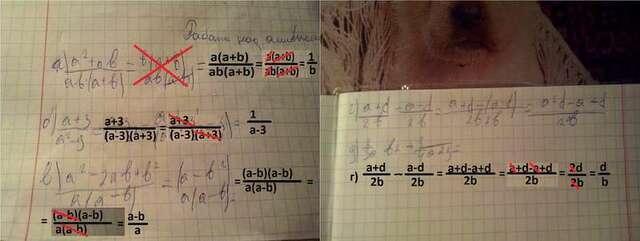 Работа над ошибками
а) a²+ab / ab(a+b) = a(a+b) / ab(a+b) = a(a+b) / ab(a+b) = 1 / b
б) a+3 / a²-9 = a+3 / (a-3)(a+3) = a+3 / (a-3)(a+3) = 1 / a-3
в) a²-2ab+b² / a(a-b) = (a-b)² / a(a-b) = (a-b)(a-b) / a(a-b) =
= (a-b)(a-b) / a(a-b) = a-b / a
г) a+d / 2b - a-d / 2b = a+d-(a-d) / 2b = a+d-a+d / 2b
г) a+d / 2b - a-d / 2b = a+d-a+d / 2b = a+d-a+d / 2b = 2d / 2b = d / b